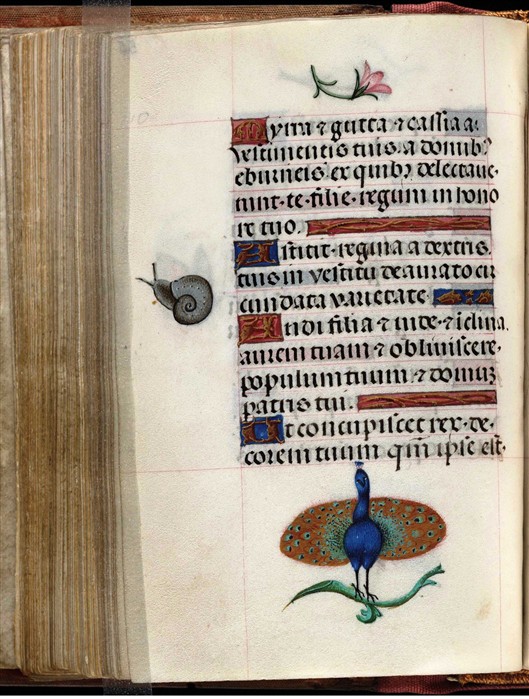 Myrra ⁊ gutta ⁊ cassia a.
vestimentis tuis. a domibꝰ
eburneis. ex quibꝫ delectaue-
runt. te. filie. regum in hono
re tuo.
Astitit. regina a dextris.
tuis in vestitu deaurato cir
cumdata varietate.
Audi filia ⁊ vide. ⁊ iclina.
aurem tuam ⁊ obliuiscere.
populum tuum ⁊ domūꝫ
patris tui.
Et concupiscet rex. de-
corem tuum qm̄ ipse est.